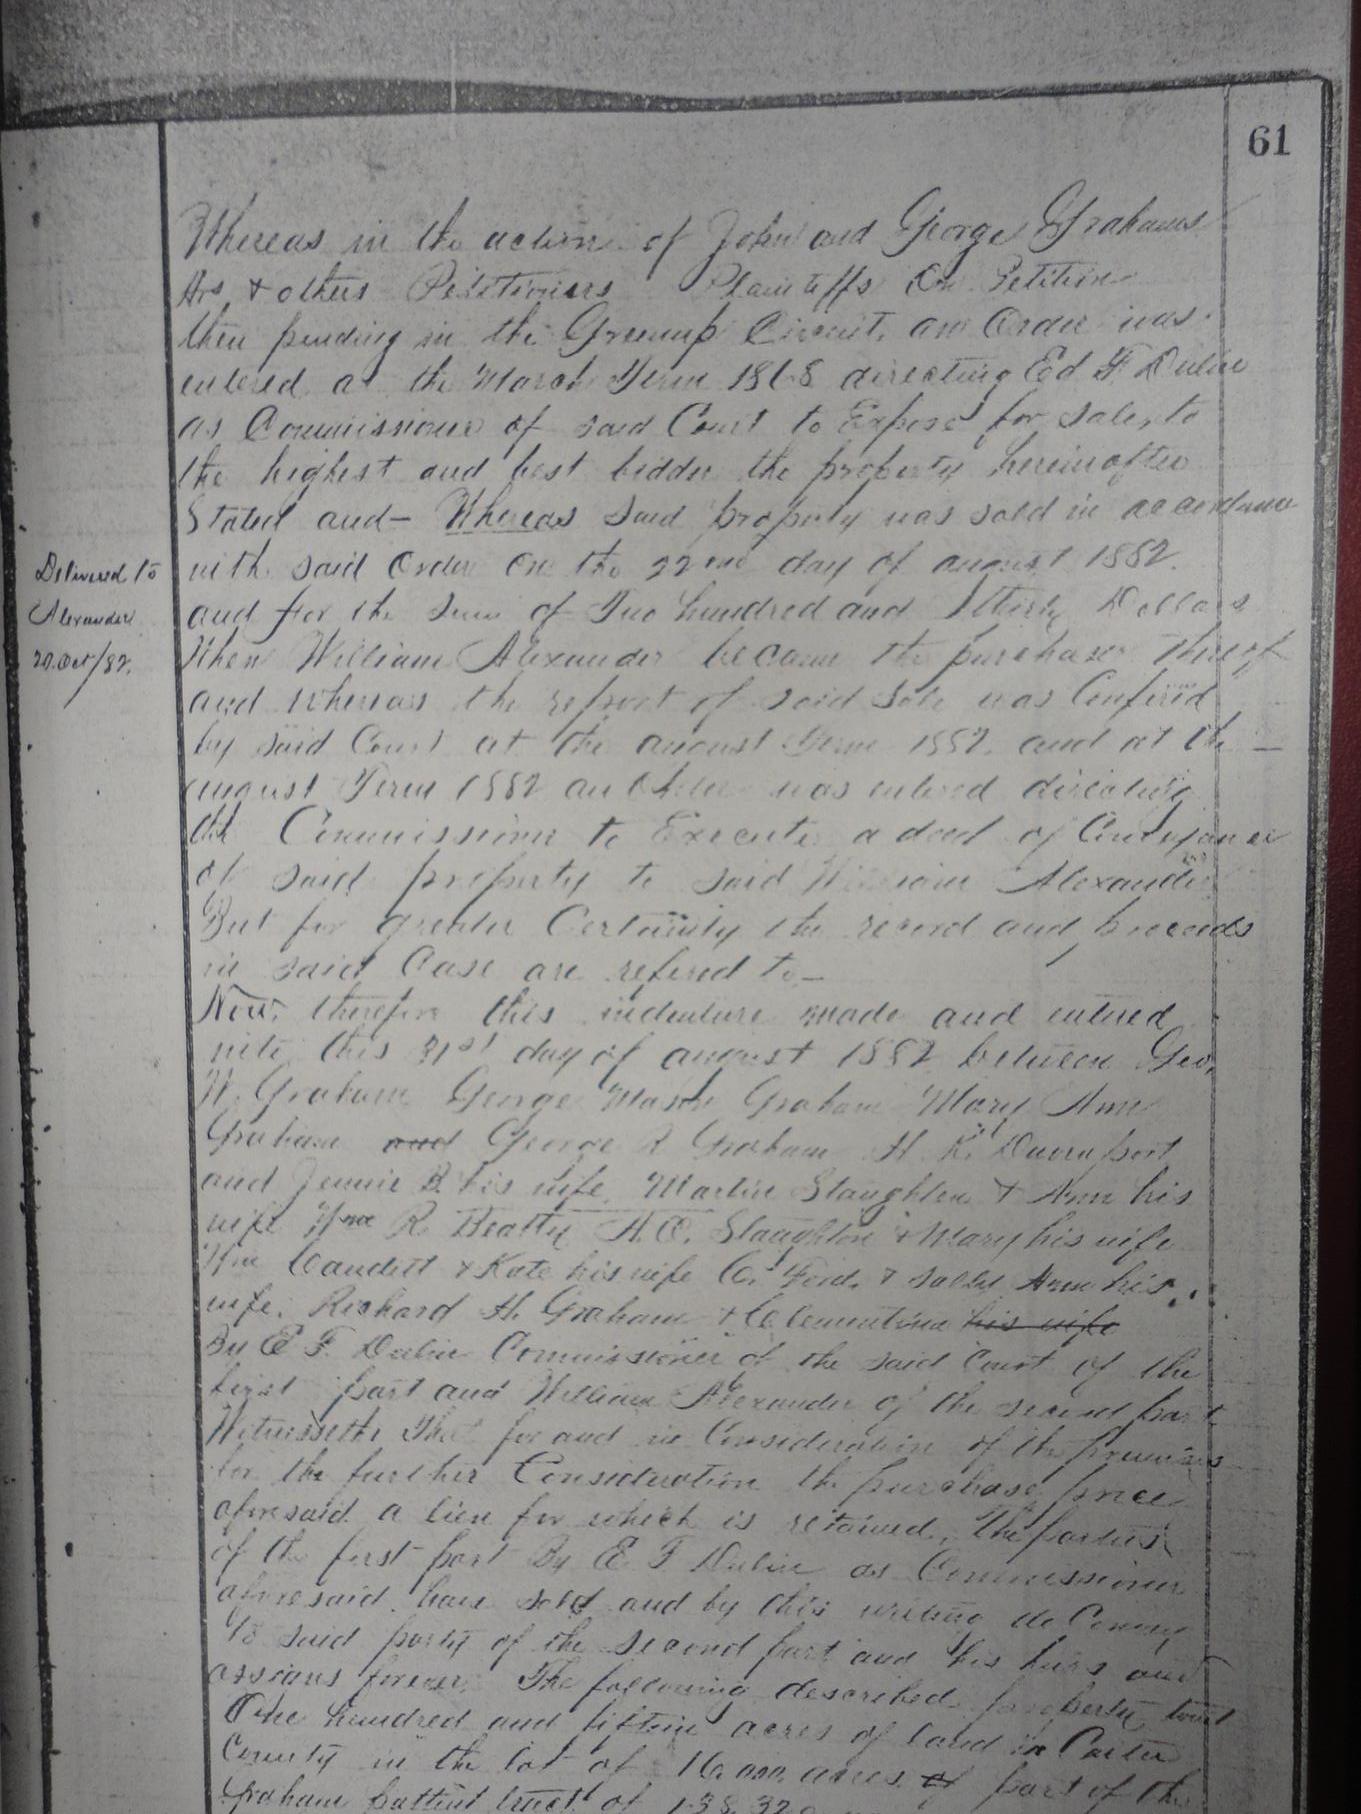 61
Whereas in the action of John and George Grahams
Hrs & others Petitioners Plaintiffs On Petition
then pending in the Greenup Circuit, an Order was
entered at the March Term 1868 directing Ed F. Dulin
as Commissioner of said Court to Expose for sale, to
the highest and best bidder the property hereinafter
Stated and— Whereas said property was sold in accordance
with said Order On the 22nd day of august 1882.
and for the sum of Two hundred and Thirty Dollars
When William Alexander became the purchaser thereof
and whereas the report of said sale was Confired
by said Court at the august Term 1882. and at the —
august Term 1882 an Order was entered directing
Commissioner to Execute a deed of Conveyance
of said property to said William Alexander
But for greater Certainty the record and proceeds
in said Case are refered to—
Now, therefore this indenture made and entered
into this 31st day of august 1882 between Geo.
W. Graham George Mason Graham Mary Ann
Graham and George R Graham H. K. Davenport
and Jennie B. his wife, Martin Slaughter & Ann his
wife Wm R. Beatty H. C. Slaughter & Mary his wife
Wm Caudett & Kate his wife C. Ford, & Salley Ann his
wife. Richard H. Graham & Clementine his wife
By E F. Dulin Commissioner of the said Court of the
first part and William Alexander of the second part
Witnesseth: That for and in Consideration of the premises
for the further Consideration the purchase price
aforesaid a lien for which is retained, The parties
of the first part By E F Dulin as Commissioner
aforesaid have sold and by this writing do Convey
to said party of the second part and his heirs and
assigns forever. The following described property, to wit
One hundred and fifteen acres of land in Carter
County in the lot of 16,000 acres of part of the
Graham pattent tract of 138,32
Delivered to
Alexander
20 Oct/82.